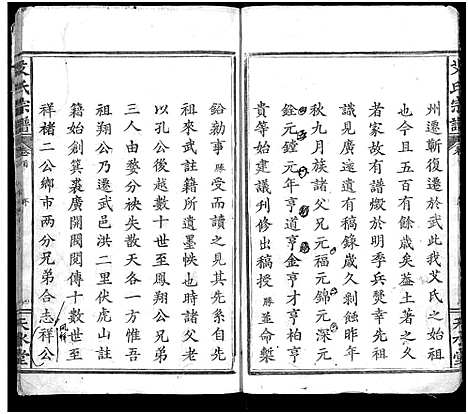 艾氏宗譜
州遷蘄復遷於武此我艾氏之始祖
也今且五百有餘歲矣蓋土著之久
者家故有譜燬於明季兵燹幸先哲
識見廣遠遺有稿錄歲久剝蝕昨年
秋九月族諸父兄元福元錦元深元
銓元鐘元年亨道亨金亨才亨柏亨
貴等始建議刊修出稿授勝並命槧
谿勷事勝受而讀之見其先系自先
祖來武註籍所遺墨帙也時時稱先
以孔公後越數十世至鳳翔公兄弟
三人由婺分袂失散天各一方惟吾
祖翔公乃遷武邑洪二里伏虎山註
籍始創箕裘廣開閥閱傳十數世至
祥禇二公鄉市兩分兄弟合志祥公
艾氏宗譜
天水堂
天水堂